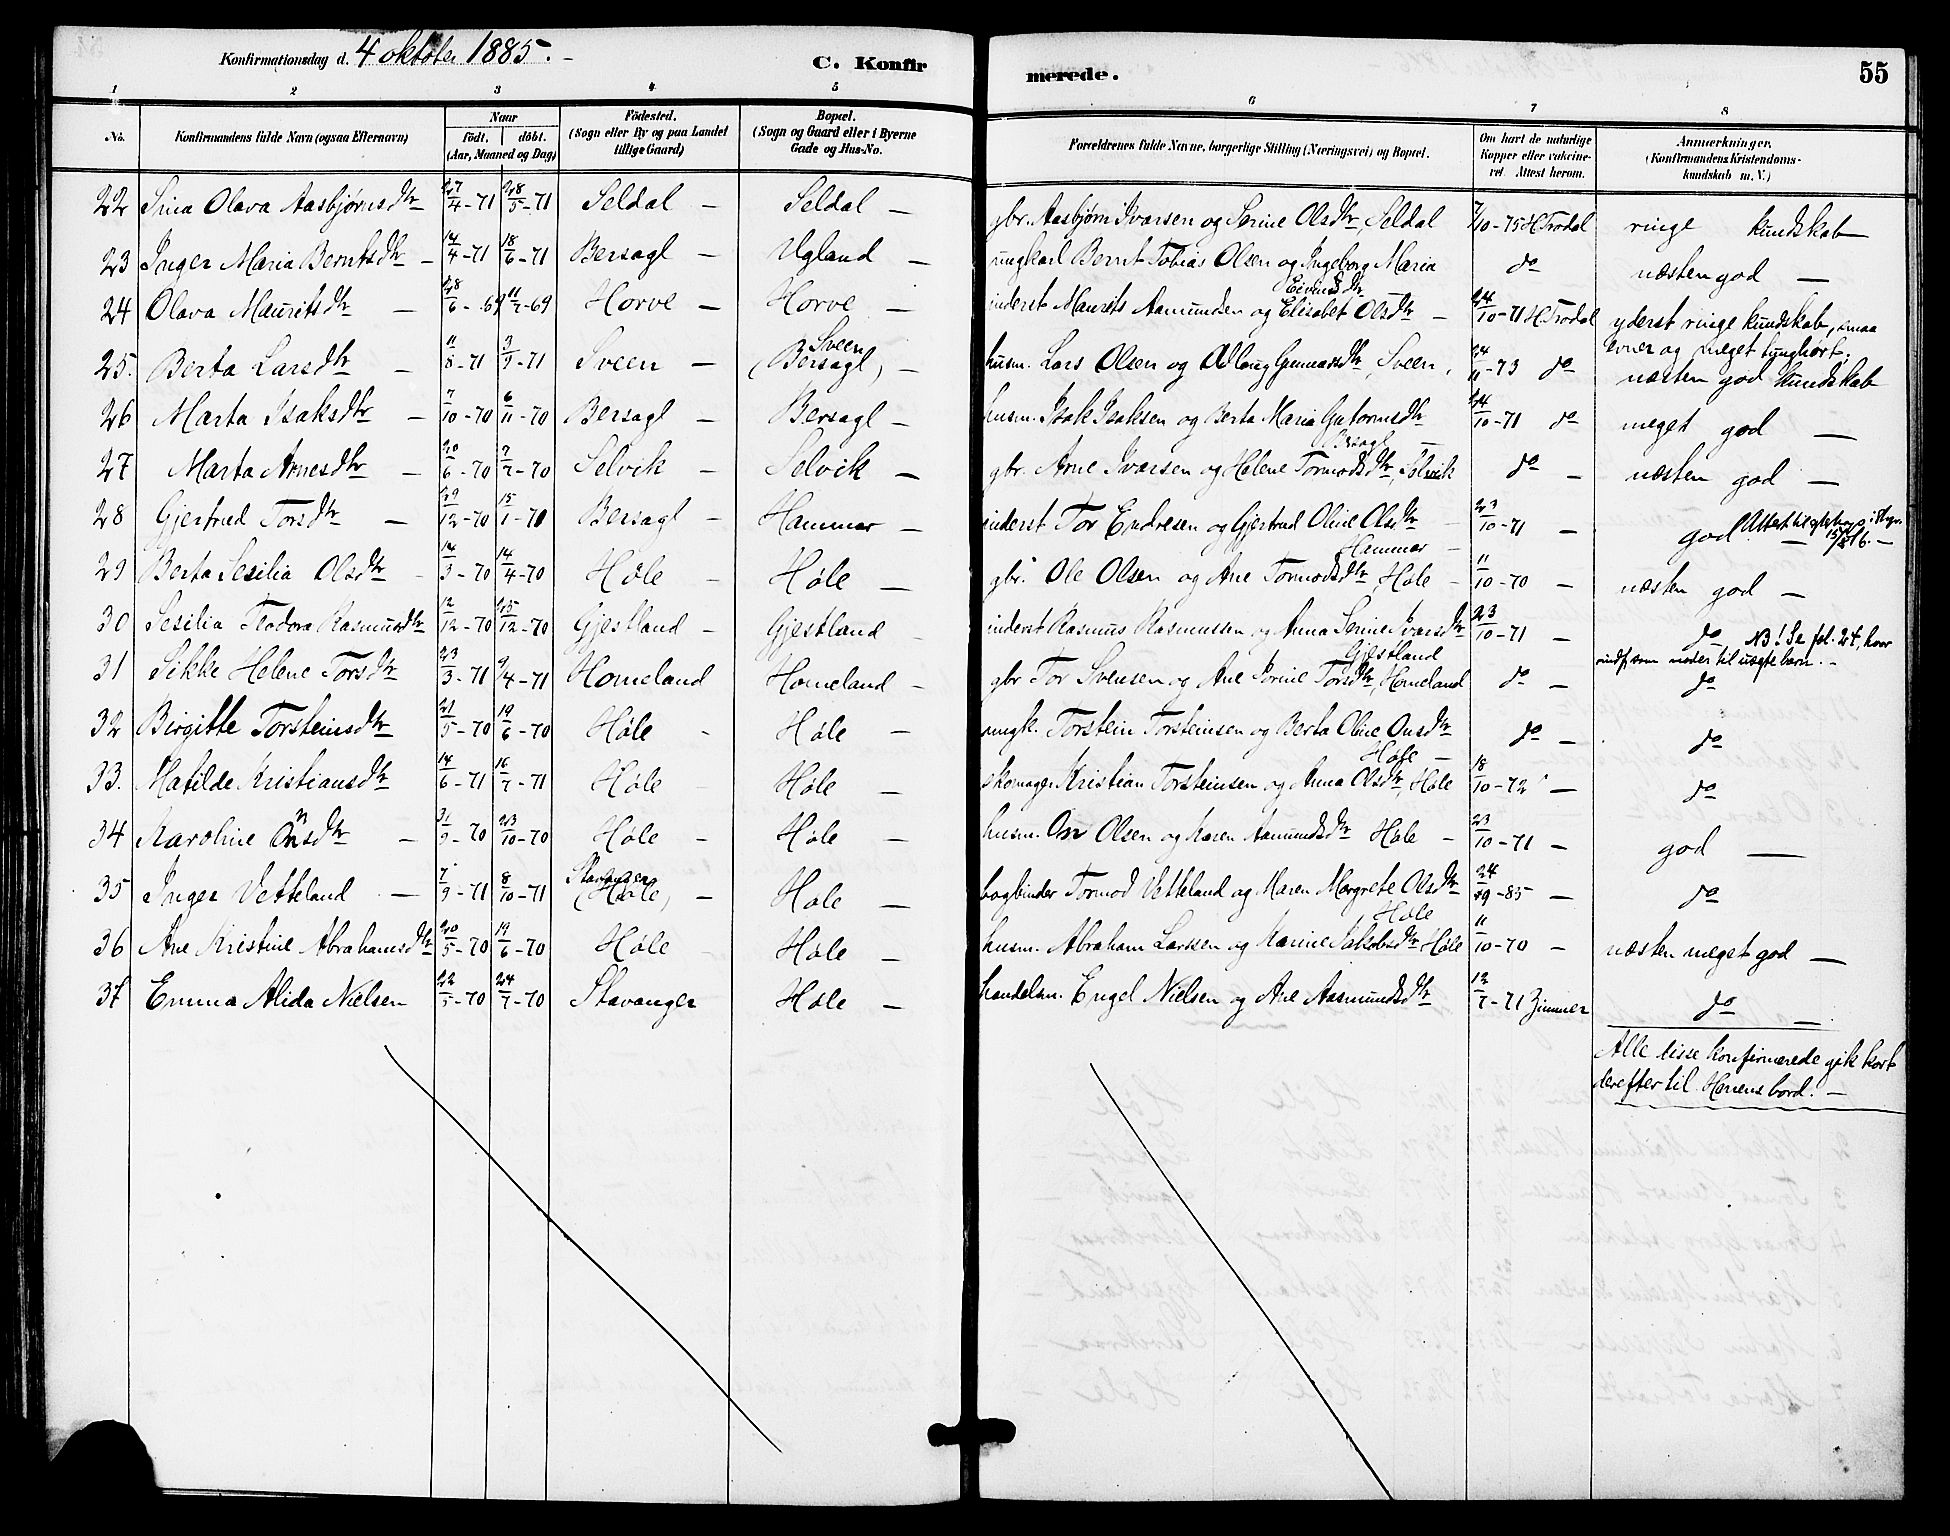 Konfirmationsdag d. 4 oktober 1885. –
C. Konfirmerede.
55
1 2 3 4 5 6 7 8
No. Konfirmandens fulde Navn (ogsaa Efternavn) Naar födt. döbt. (Aar, Maaned og Dag) Födested. (Sogn eller By og paa Landet tillige Gaard) Bopæl. (Sogn og Gaard eller i Byerne Gade og Hus-No. Forældrenes fulde Navne, borgerlige Stilling (Næringsvei) og Bopæl. Om havt de naturlige Kopper eller vaccineret. Attest herom. Anmærkninger. (Konfirmandens Kristendomskundskab m. V.)
22 Sina Olava Aasbjørnsdtr 27/4-71 28/5-71 Seldal – Seldal – gbr. Aasbjørn Ivarsen og Serine Olsdtr, Seldal 7/10-75 H. Trodal ringe kundskab
23 Inger Maria Berntsdtr – 14/4-71 18/6-71 Bersagl – Ugland – ungkarl Bernt Tobias Olsen og Ingeborg Maria Eivindsdtr do næsten god –
24 Olava Mauritsdtr – 28/6-69 11/7-69 Horve – Horve – inderst Maurits Aamundsen og Elisabet Olsdtr – 24/10-71 H. Trodal yderst ringe kundskab, smaa evner og meget tunghørt.
25. Berta Larsdtr – 11/8-71 3/9-71 Sveen – Sveen (Bersagl) – husm. Lars Olsen og Adlaug Gunnarsdtr, Sveen, 24/11-73 do næsten god kundskab
26 Marta Isaksdtr – 7/10-70 6/11-70 Bersagl – Bersagl – husm. Isak Isaksen og Berta Maria Gutormsdtr Bersagl – 24/10-71 do meget god –
27 Marta Arnesdtr – 20/6-70 7/7-70 Selvik – Selvik – gbr. Arne Ivarsen og Helene Tormodsdtr, Selvik do – næsten god –
28 Gjertrud Torsdtr – 29/12-70 15/1-71 Bersagl – Hammer – inderst Tor Endresen og Gjertrud Oline Olsdtr – Hammer – 23/10-71 – god –
29 Berta Sesilia Olsdtr – 14/3-70 14/4-70 Høle – Høle – gbr. Ole Olsen og Ane Tormodsdtr, Høle – 11/10-70 – næsten god –
30 Sesilia Teodora Rasmusdtr 12/12-70 25/12-70 Gjestland – Gjestland – inderst Rasmus Rasmussen og Anna Serine Ivarsdtr Gjestland 23/10-71 – do NB! Se fol. 24, hvor indf. som moder til uægte barn. –
31 Sikke Helene Torsdtr 23/3-71 9/4-71 Homeland Homeland – gbr Tor Svensen og Ane Serine Torsdtr, Homeland do – do
32 Birgitte Torsteinsdtr 21/5-70 19/6-70 Høle – Høle – ungk. Torstein Torsteinsen og Berta Oline Onsdtr Høle – do – do
33. Matilde Kristiansdtr 14/6-71 16/7-71 Høle Høle – skomager Kristian Torsteinsen og Anna Olsdtr, Høle 18/10-72 – do
34 Karoline Onsdtr – 31/9-70 23/10-70 Høle – Høle – husm. On Olsen og Karen Aamundsdtr Høle – 23/10-71 – god –
35 Inger Vetteland – 7/9-71 8/10-71 Stavanger (Høle) – Høle – bogbinder Tormod Vetteland og Maren Margrete Olsdtr Høle 24/9-85 – do
36 Ane Kristine Abrahamsdtr 20/5-70 19/6-70 Høle Høle – husm. Abraham Larsen og Karine Jakobsdtr Høle 11/10-70 – næsten meget god –
37 Emma Alida Nielsen 22/5-70 24/7-70 Stavanger Høle – handelsm. Engel Nielsen og Ane Aasmundsdtr 12/7-71 Zimmer do –
Alle disse konfirmerede gik kort
derefter til Herrens bord. –